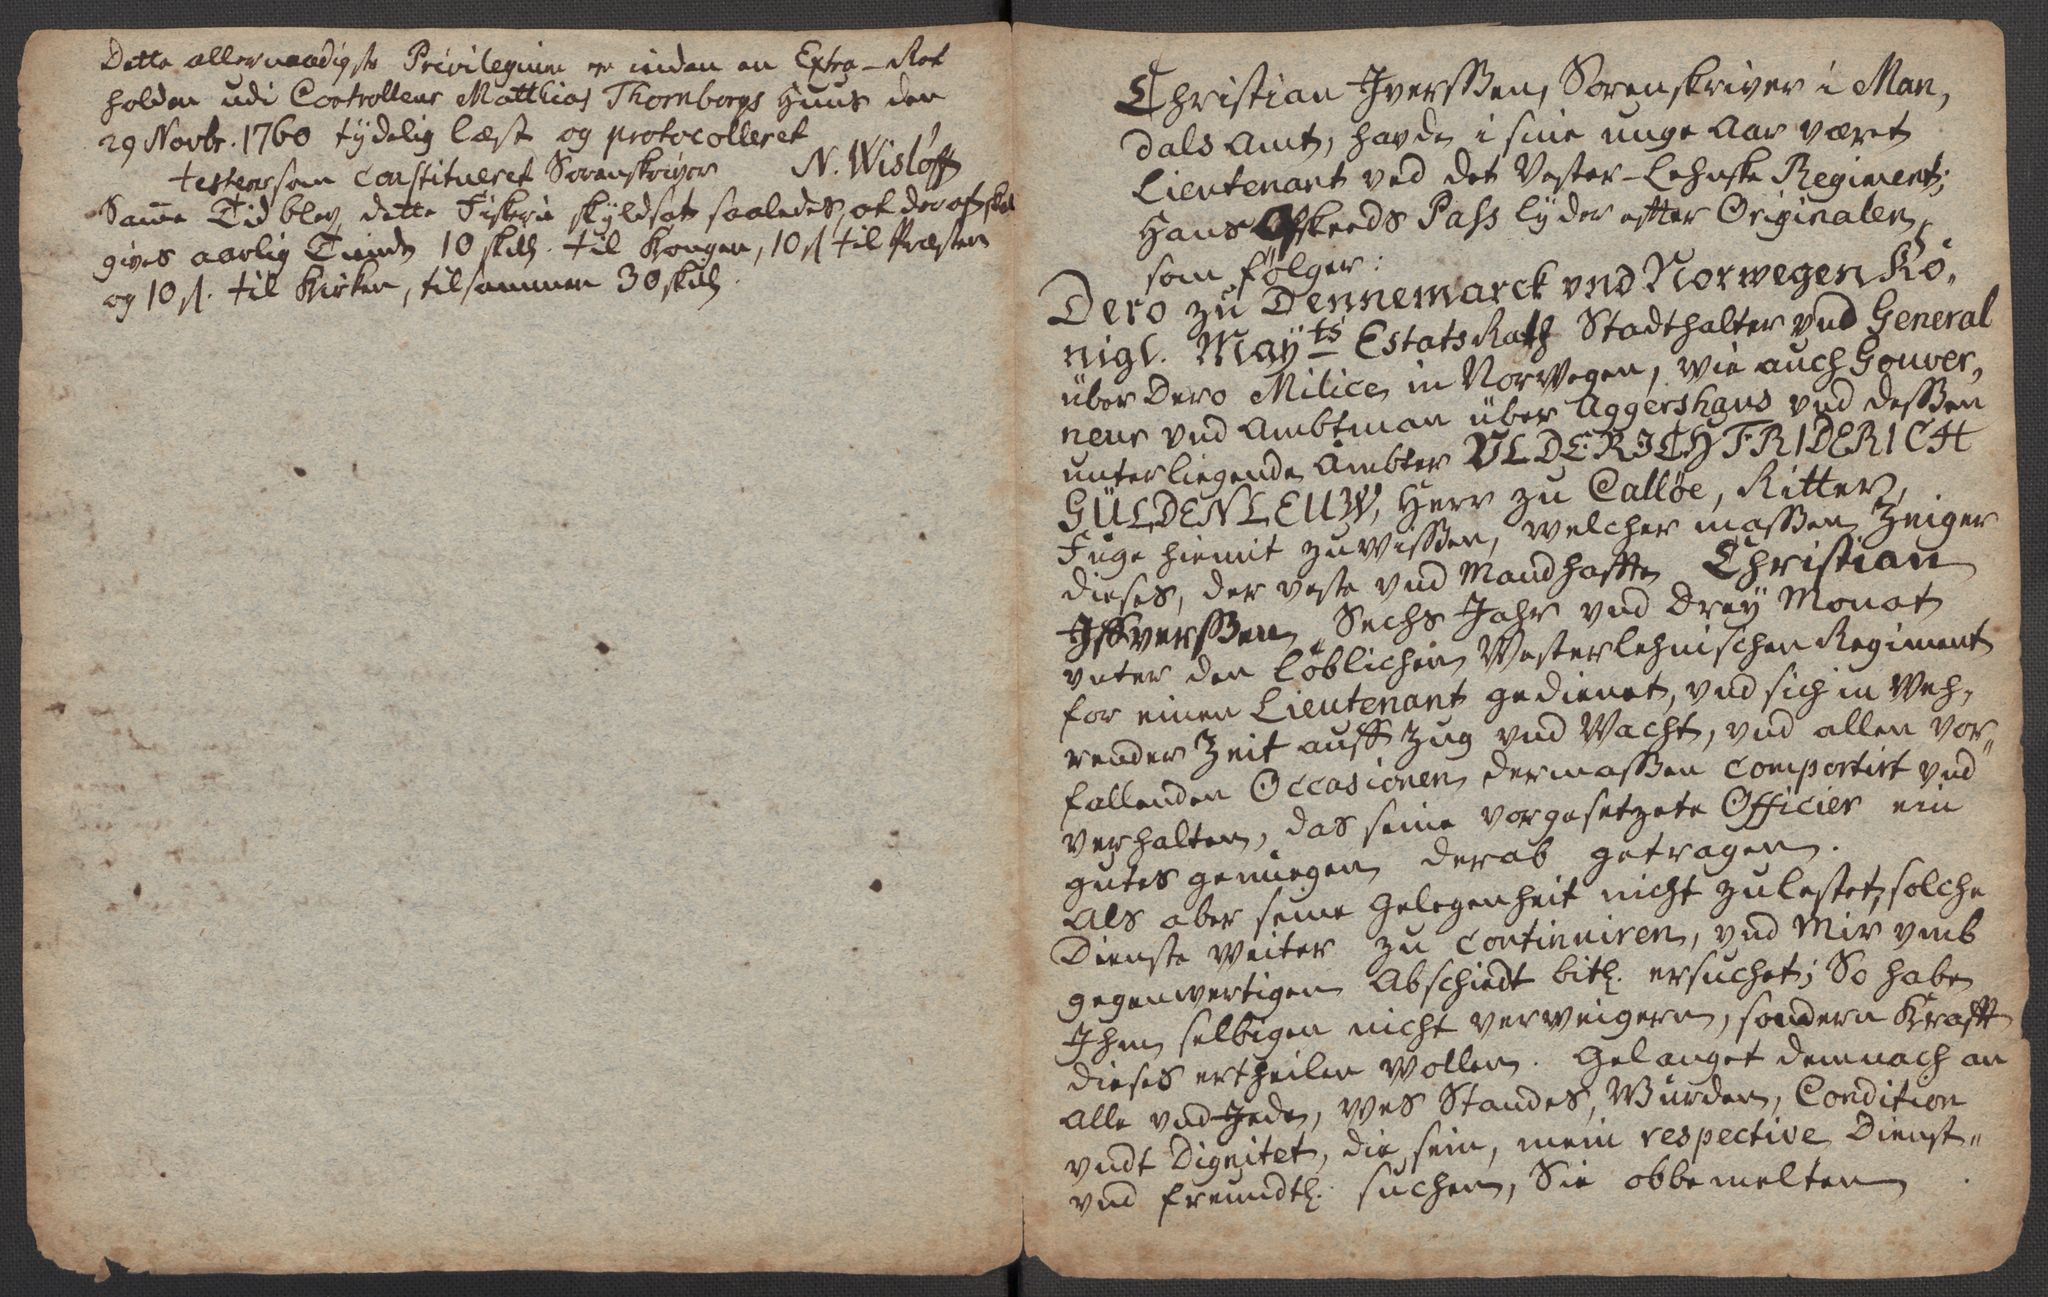 Dette allernaadigste Privilegium er inden en Extra-Ret
holden udi Controlleur Matthias Thornborgs Huus den
29 Novbr. 1760 tydelig læst og protocolleret
testerer som constitueret Sorenskriver N. Wisløff
Samme Tid blev dette Fiskerie skyldsat saaledes, at deraf skal
gives aarlig Tiende 10 skill. til Kongen, 10 sl. til Præsten
og 10 sl. til Kirken, tilsammen 30 skill.
Christian Jverssen, Sorenskriver i Man,
dals Amt, havde i sine unge Aar været
Lieutenant ved det Vester-Lehnske Regiment;
Hans Afskeeds Pass lyder efter Originalen
som følger:
Dero zu Dennemarck vnd Norwegen Kö,
nigl. Mayts EstatsRath Stadthalter vnd General
über Dero Milice in Norwegen, wie auch Gouver,
neur vnd Ambtman über Aggershaus vnd dessen
unterliegende Ämbter VLDERICH FRIDERICH
GÜLDENLEUW, Herr zu Calløe, Ritter,
Fuge hiemit zuwissen, welcher massen Zeiger
dieses, der veste vnd Mandhaffte Christian
Jffverssen, Sechs Jahr vnd Drey Monat
vnter den Löblichen Westerlehnischen Regiment
for einen Lieutenant gedienet, vnd sich in weh,
render Zeit auff Zug vnd Wacht, vnd allen vor"
fallenden Occasionen dermassen comportirt vnd
verhalten, das seine vorgesetzete Officier ein
gutes genuegen derab getragen.
Als aber seine Gelegenheit nicht zulestet, solche
Dienste weiter zu continuiren, vnd Mir vmb
gegenwertigen Abschiedt bitl. ersuchet; So habe
Jhm selbigen nicht verweigern, sondern Krafft
dieses ertheilen wollen. Gelanget demnach an
Alle vnd Jede, wes Standes, Würden, Condition
vndt Dignitet, die sein, mein respective Dienst"
vnd freundtl. suchen, Sie obbemelten